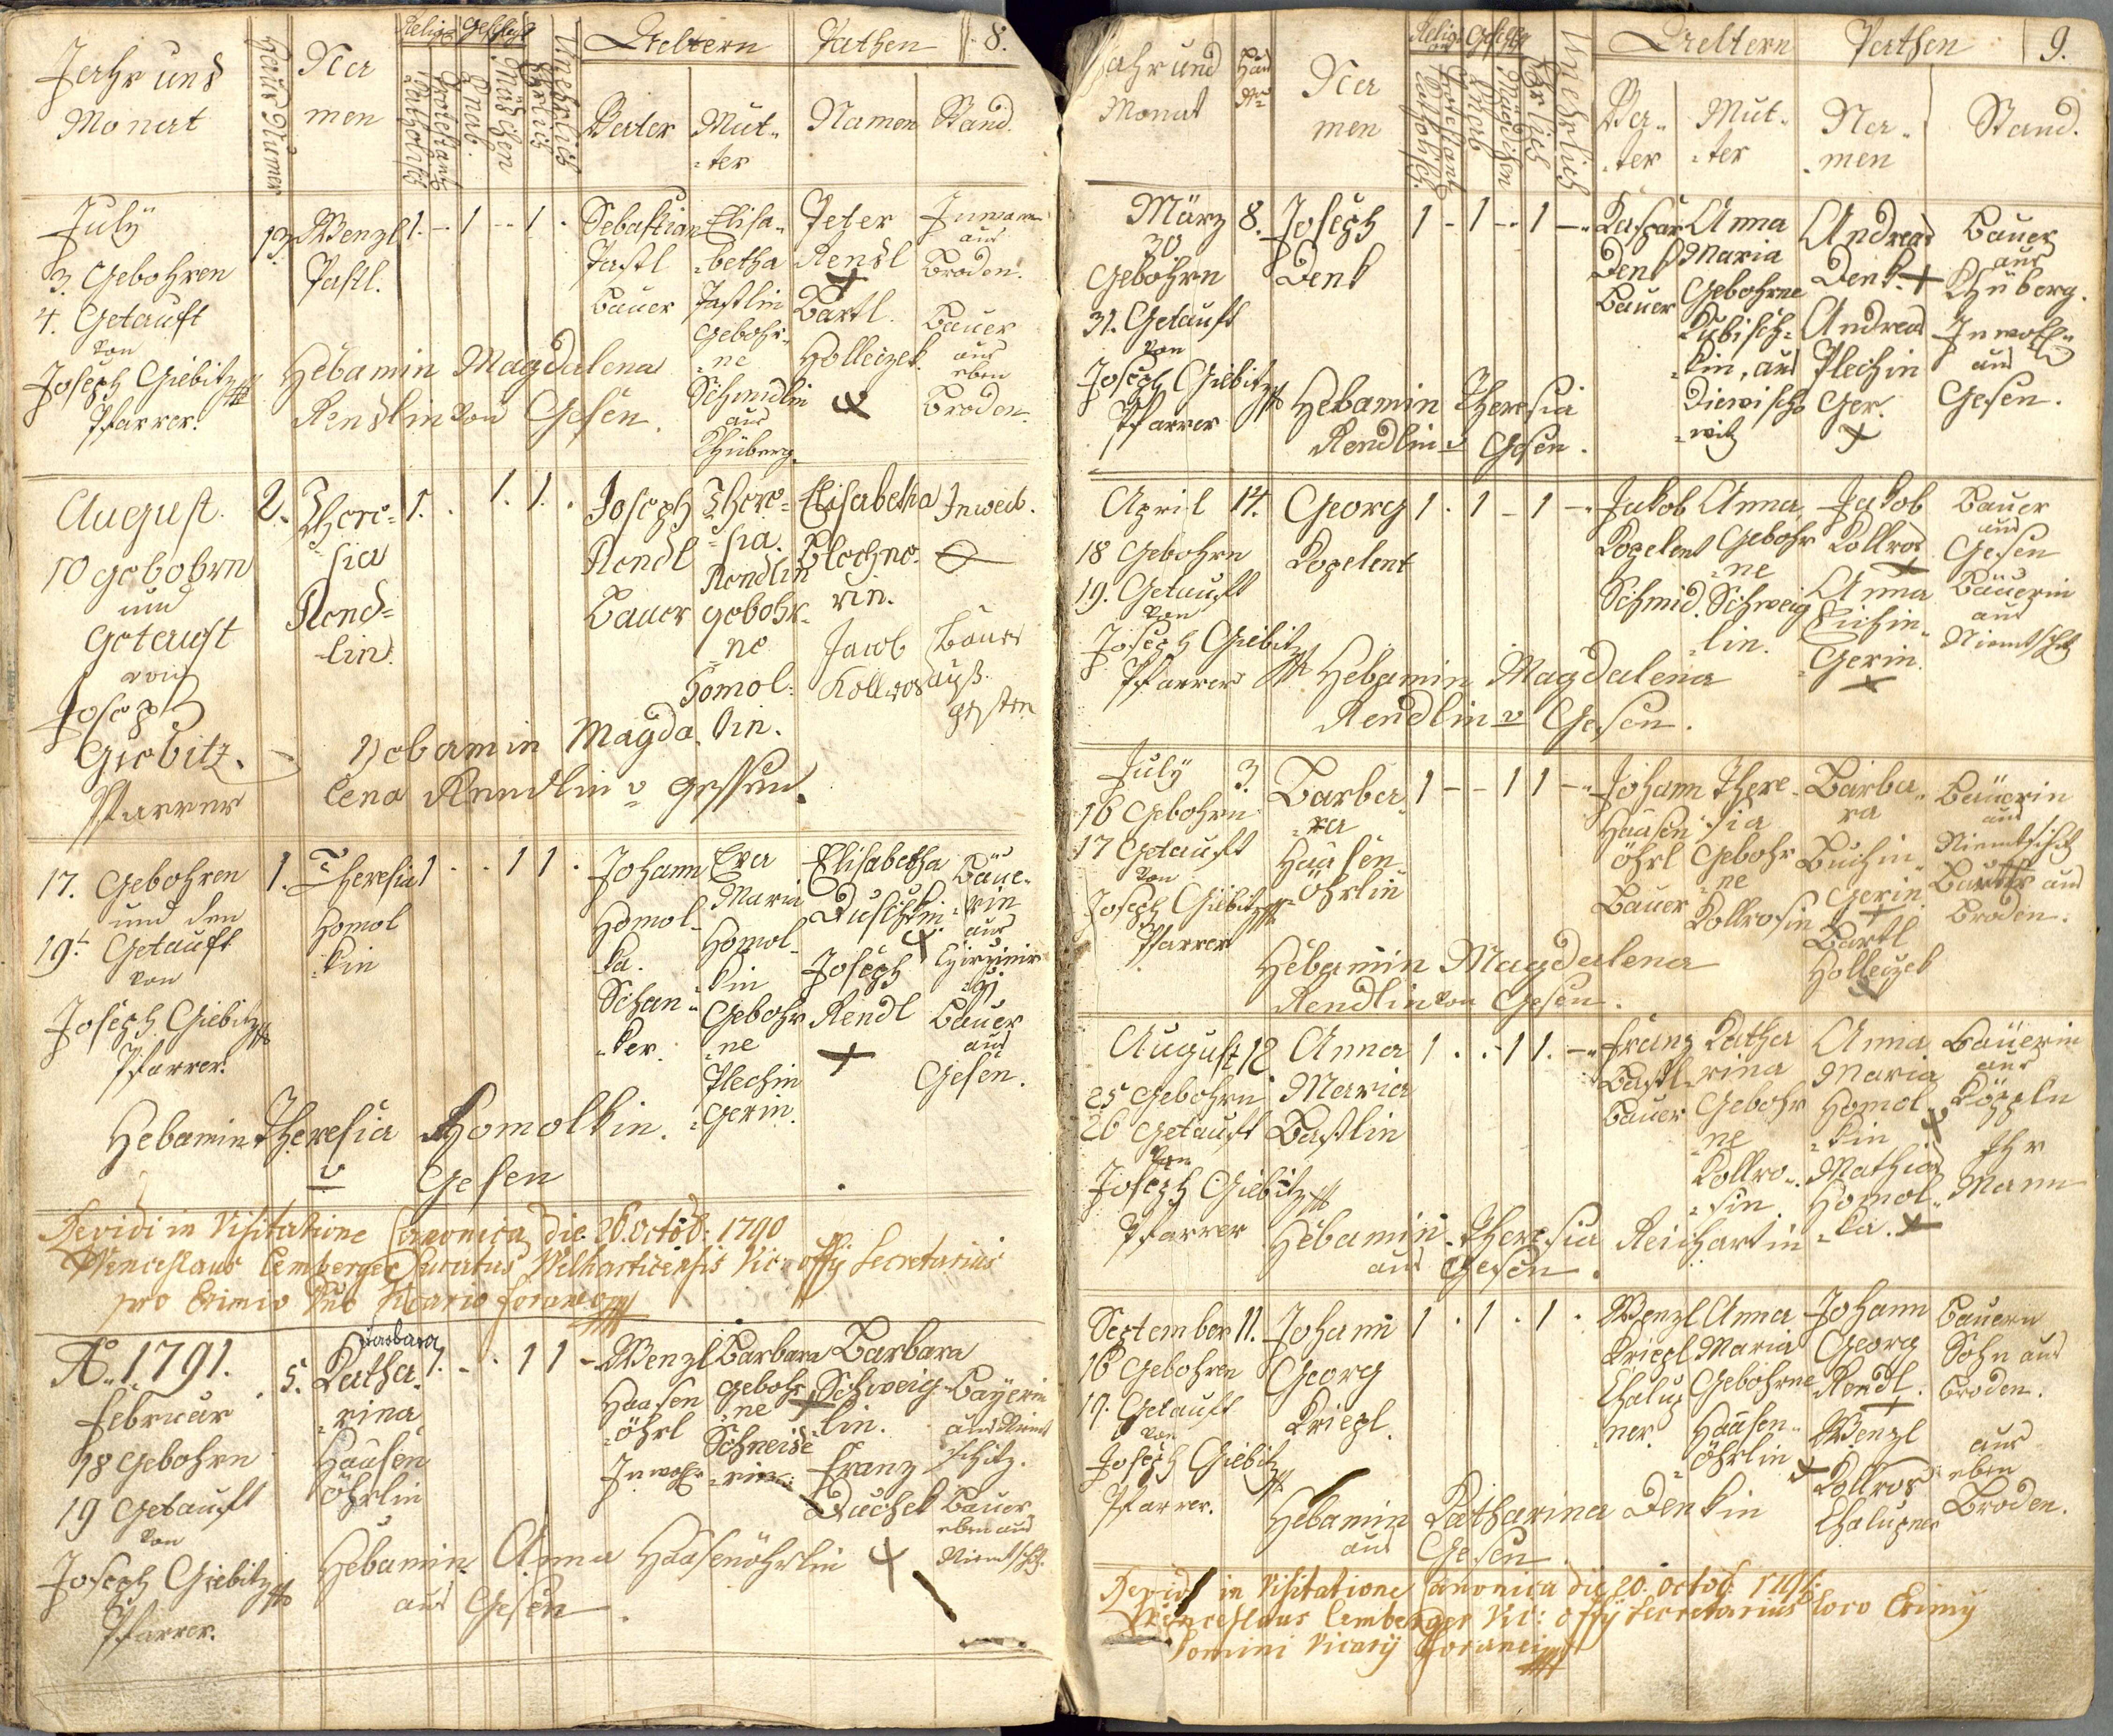 Jahr und
Monat
Haus Numer
Na
men
Relig:
Geschlecht
Katholisch
Protestant
Knab.
Mädchen
Ehelich
Unehelich
Aeltern
Pathen
8.
Vater
Mut-
-ter
Namen
Stand.
July
3. Gebohren
4. Getauft
von
Joseph Giebitz
Pfarrer.
13.
Wenzl
Pastl.
1. - 1 - - 1 .
Sebastian
Pastl
Bauer
Elisa-
-betha
Pastlin
Gebohr-
-ne
Schmidlin
aus
Chüberg.
Peter
Rendl
+
Bartl.
Holleczek
Inwoh
aus
Broden.
Bauer
aus
eben
Broden
Hebamin Magdalena
Rendlin von Gesen.
August.
10 gebohrn
und
Getauft
von
Joseph
Giebitz.
Pfarrer
2.
There-
-sia
Rend-
-lin.
1. . 1. 1. .
Joseph
Rendl
Bauer
There-
-sia
Rendlin
gebohr-
ne
Homol-
kin.
Elisabetha
Plechne-
rin.
Jacob
Kollros
Inweib.
Bauer
auß
gessen
Hebamin Magda
lena Rendlin v gessen.
17. Gebohren
und den
19t Getauft
von
Joseph Giebitz
Pfarrer.
1.
Theresia
Homol
-kin
1 . . 1 1 .
Johann
Homol-
ka.
Schan-
-ker.
Eva
Maria
Homol-
kin
Gebohr
-ne
Plechin
-Gerin.
Elisabetha
Duschkin
Joseph
Rendl
+
Bäue-
-rin
aus
Bauer
aus
Gesen.
Hebamin Theresia Homolkin.
v Gesen
Revidi in Visitatione Canonica die 26. octob: 1790
Wenceslaus Lemberger Curatus Welhoticensis Vic: offy Secretarius
pro Eximio Dno Vicario foraneo
Ao. 1791.
Februar
18 Gebohrn
19 Getauft
von
Joseph Giebitz
Pfarrer.
5.
Barbara
Katha-
-rina
Haasen
öhrlin
1. - . 1 1 -
Wenzl
Haasen
-öhrl
Inwohr
Barbara
gebohr
-ne
Schneide
-rin.
Barbara
Schweig-
-lin.
Franz
Duchek
Bäyerin
aus Niemt
schitz.
Bauer
eben aus
Niemtschitz
Hebamin Anna Haasenöhrlin
aus Gesen.
Jahr und
Monat
Haus
Nro
Na
men
Relig
Geschl
Katholisch.
Protestant
Knab
Mädchen
Ehrlich
Unehrlich
Aeltern
Pathen
9.
Va-
-ter
Mut-
-ter
Na-
-men
Stand.
März
30
Gebohrn
31. Getauft
von
Joseph Giebitz
Pfarrer
8.
Joseph
Denk
1 - 1 - - 1 -
Kaspar
Denk
Bauer
Anna
Maria
Gebohrne
Kubisch-
-kin, aus
Diewischo
-witz
Andreas
Denk +
Andreas
Plechin
Ger.
+
Bauer
aus
Chüberg.
Inwoh-
aus
Gesen.
Hebamin Theresia
Rendlin v Gesen.
April
18 Gebohrn
19. Getauft
von
Joseph Giebitz
Pfarrer
14.
Georg
Kopelent
1 . 1 - 1 -
Jakob
Kopelent
Schmid.
Anna
Gebohr
-ne
Schweig
-lin.
Jakob
Kollros
Anna
Plechin-
-Gerin.
+
Bauer
aus
Gesen
Bäuerin
aus
Niemtschitz
Hebamin Magdalena
Rendlin v Gesen.
July
16 Gebohrn
17 Getauft
von
Joseph Giebitz
Pfarrer
3.
Barba-
-ra
Haasen
-öhrlin
1 - - 1 1 -
Johann
Haasen
öhrl
Bauer
There-
sia
Gebohr
-ne
Kollrosin
Barba-
ra
Buchin-
Gerin.
+
Bartl
Holleczek
Bäuerin
aus
Niemtschitz
Bauer aus
Broden.
Hebamin Magdalena
Rendlin von Gesen.
August
25 Gebohrn
26 Getauft
von
Joseph Giebitz
Pfarrer
12.
Anna
Maria
Bastlin
1 . . 1 1. -
Franz
Bastl
Bauer
Katha
rina
Gebohr
-ne
Kollro-
-sin
Anna
Maria
Homol
-kin
Mathias
Homol-
-ka. +
Bäuerin
aus
Ihr
Mann
Hebamin Theresia Reichartin
aus Gesen.
September
16 Gebohren
17. Getauft
von
Joseph Giebitz
Pfarrer.
11.
Johann
Georg
Kriegl.
1 . 1 . 1 .
Wenzl
Kriegl
Chalup
-ner.
Anna
Maria
Gebohrne
Haasen-
-öhrlin
Johann
Georg
Rendl.
+
Wenzl
Kollros
Chalupner
Bauern
Sohn aus
Broden.
aus
eben
Broden.
Hebamin Katharina Denkin
aus Gesen.
Revidi in Visitatione Canonica die 20. octob: 1791.
Wenceslaus Lemberger Vic: offy Secretarius loco Eximy
Domini Vicarij foranei